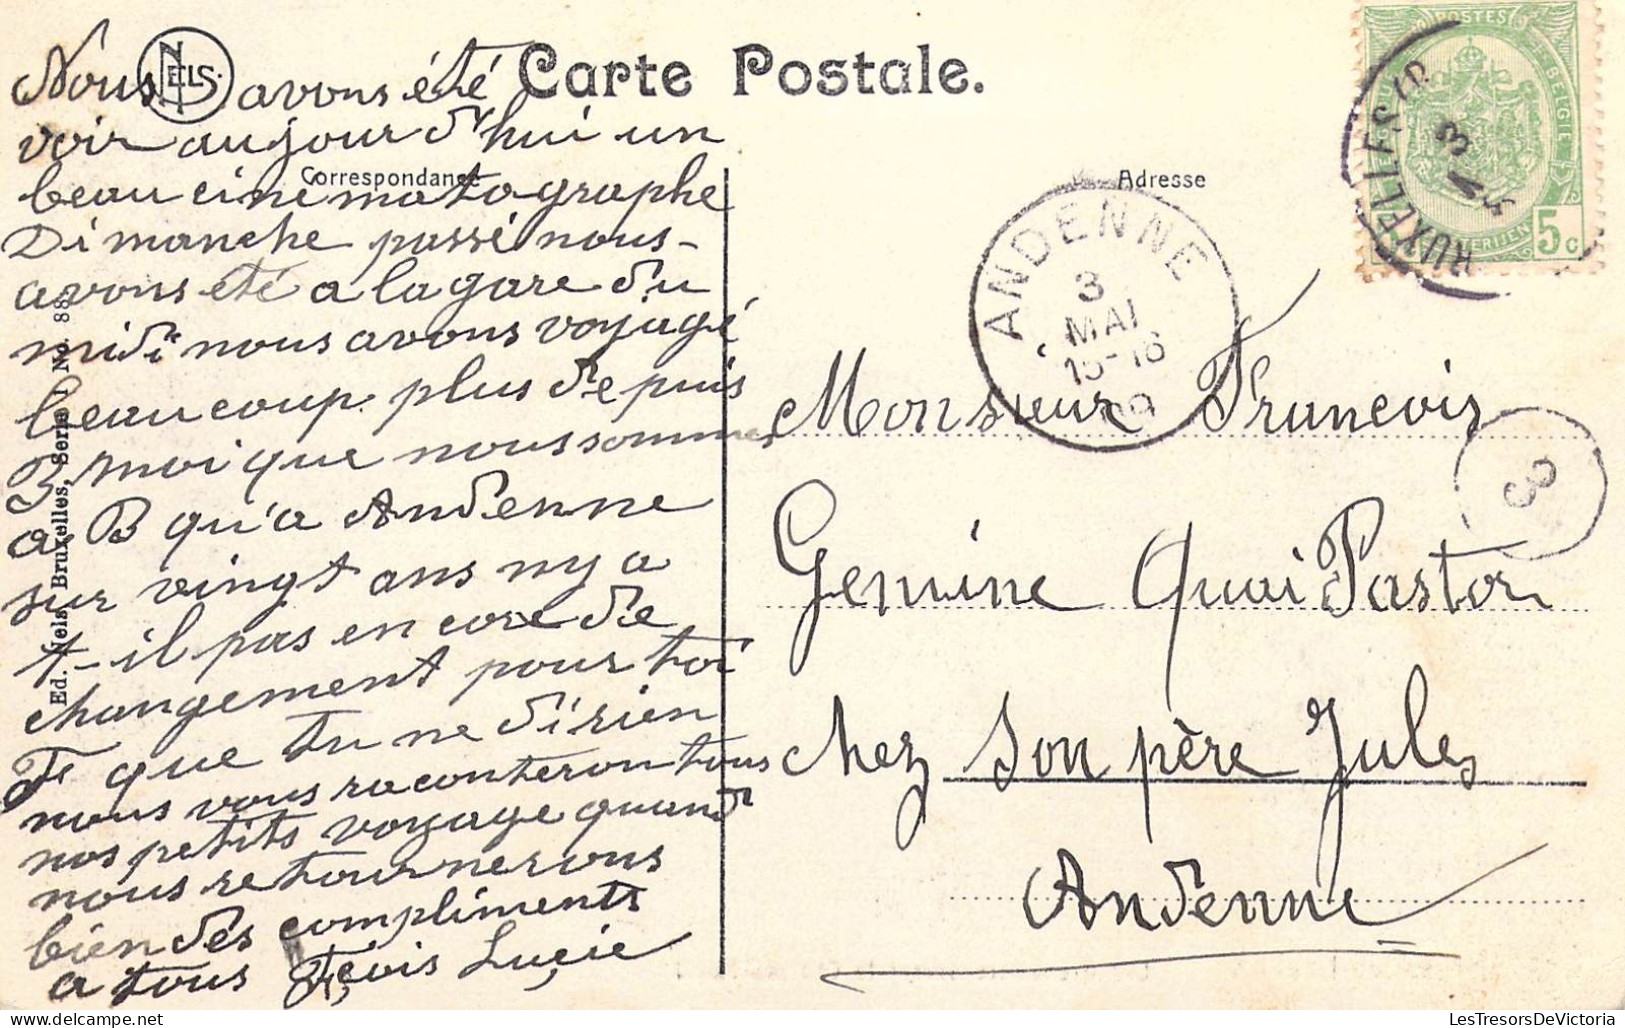 Carte Postale.
NELS
Correspondance
Adresse
Nous avons été
voir aujourd'hui un
beau cinematographe
Dimanche passé nous-
avons été a la gare du
midi nous avons voyagé
beaucoup plus depuis
3 moi que nous sommes
a B qu'a Andenne
sur vingt ans ny a
t-il pas encore de
changement pour toi
F que tu ne di rien
nous vous raconteron tous
nos petits voyage quand
nous retournerons
bien dés compliments
a tous Fçois Luçie
Ed. Nels, Bruxelles, Serie 1 No. 88
POSTES
BELGIE
5 c
BRUXELLES
3 V
ANDENNE
3
MAI
15-16
09
3
Monsieur François
Gemine Quai Pastor
chez son père Jules
Andenne
LesTresorsDeVictoria.com